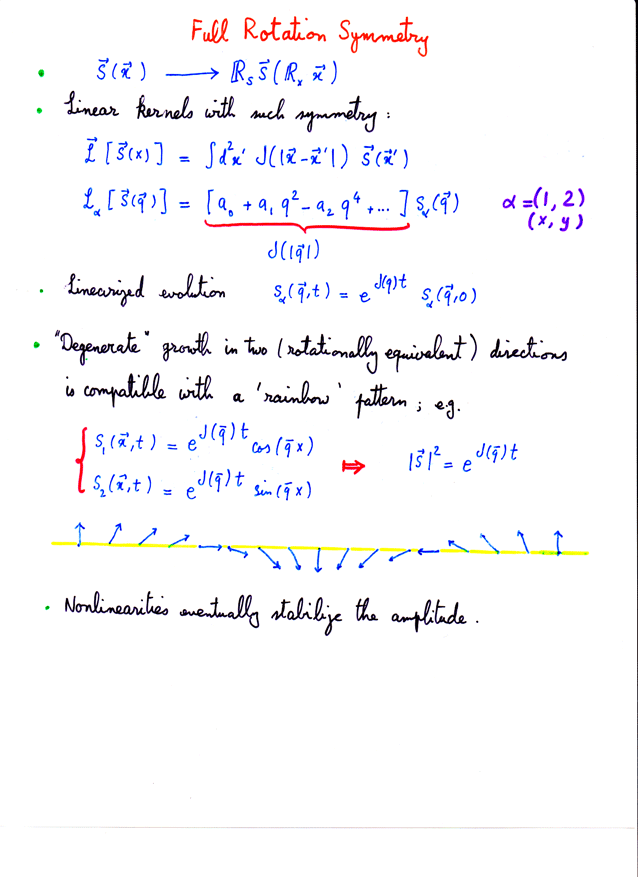 Full Rotation Symmetry
• S⃗(x⃗) ⟶ ℝ_s S⃗(ℝ_x x⃗)
• Linear kernels with such symmetry:
L⃗ [S⃗(x)] = ∫d²x' J(|x⃗-x⃗'|) S⃗(x⃗')
L_α [S⃗(q⃗)] = [a₀ + a₁ q² - a₂ q⁴ + ...] S_α(q⃗) α = (1, 2)
(x, y)
J(|q⃗|)
• Linearized evolution S_α(q⃗,t) = e^{J(q)t} S_α(q⃗,0)
• "Degenerate" growth in two (rotationally equivalent) directions
is compatible with a 'rainbow' pattern; e.g.
{ S₁(x⃗,t) = e^{J(q̄)t} cos(q̄x) ⇒ |S⃗|² = e^{J(q̄)t}
S₂(x⃗,t) = e^{J(q̄)t} sin(q̄x)
• Nonlinearities eventually stabilize the amplitude.